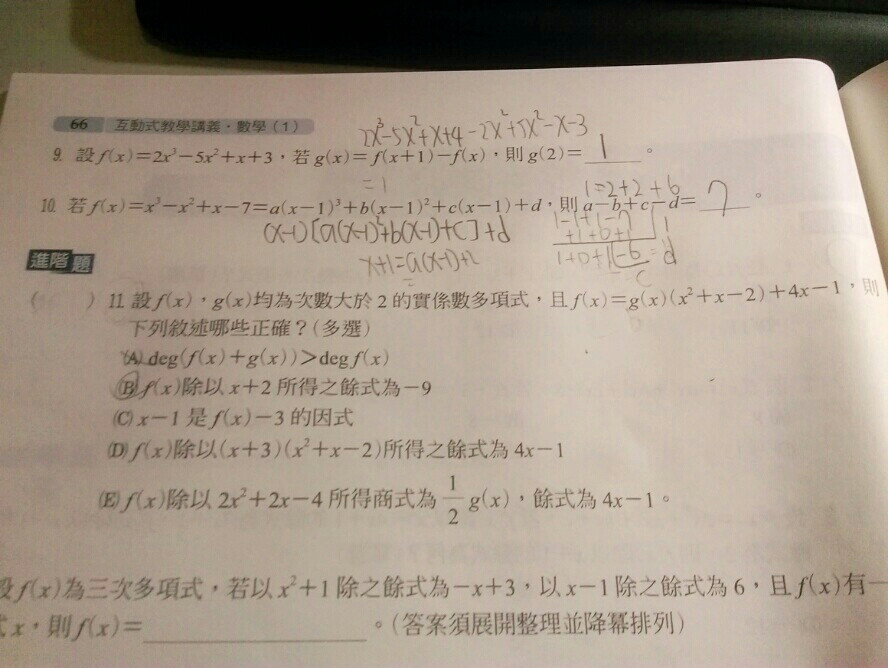 66 互動式教學講義·數學(1)
2x³-5x²+x+4-2x²+5x²-x-3
9. 設f(x)=2x³-5x²+x+3,若g(x)=f(x+1)-f(x),則g(2)=1。
=1
1=2+2+6
10. 若f(x)=x³-x²+x-7=a(x-1)³+b(x-1)²+c(x-1)+d,則a-b+c-d=7。
(x-1)[a(x-1)²+b(x-1)+c]+d
1-1+1-7 1
+1+0+1
x+1=a(x-1)+
1+0+1-6=d
c
進階題
( )11. 設f(x),g(x)均為次數大於2的實係數多項式,且f(x)=g(x)(x²+x-2)+4x-1,則
下列敘述哪些正確?(多選)
(A) deg(f(x)+g(x))>deg f(x)
(B) f(x)除以x+2所得之餘式為-9
(C) x-1是f(x)-3的因式
(D) f(x)除以(x+3)(x²+x-2)所得之餘式為4x-1
(E) f(x)除以2x²+2x-4所得商式為1/2 g(x),餘式為4x-1。
設f(x)為三次多項式,若以x²+1除之餘式為-x+3,以x-1除之餘式為6,且f(x)有一
式x,則f(x)=____________。(答案須展開整理並降冪排列)